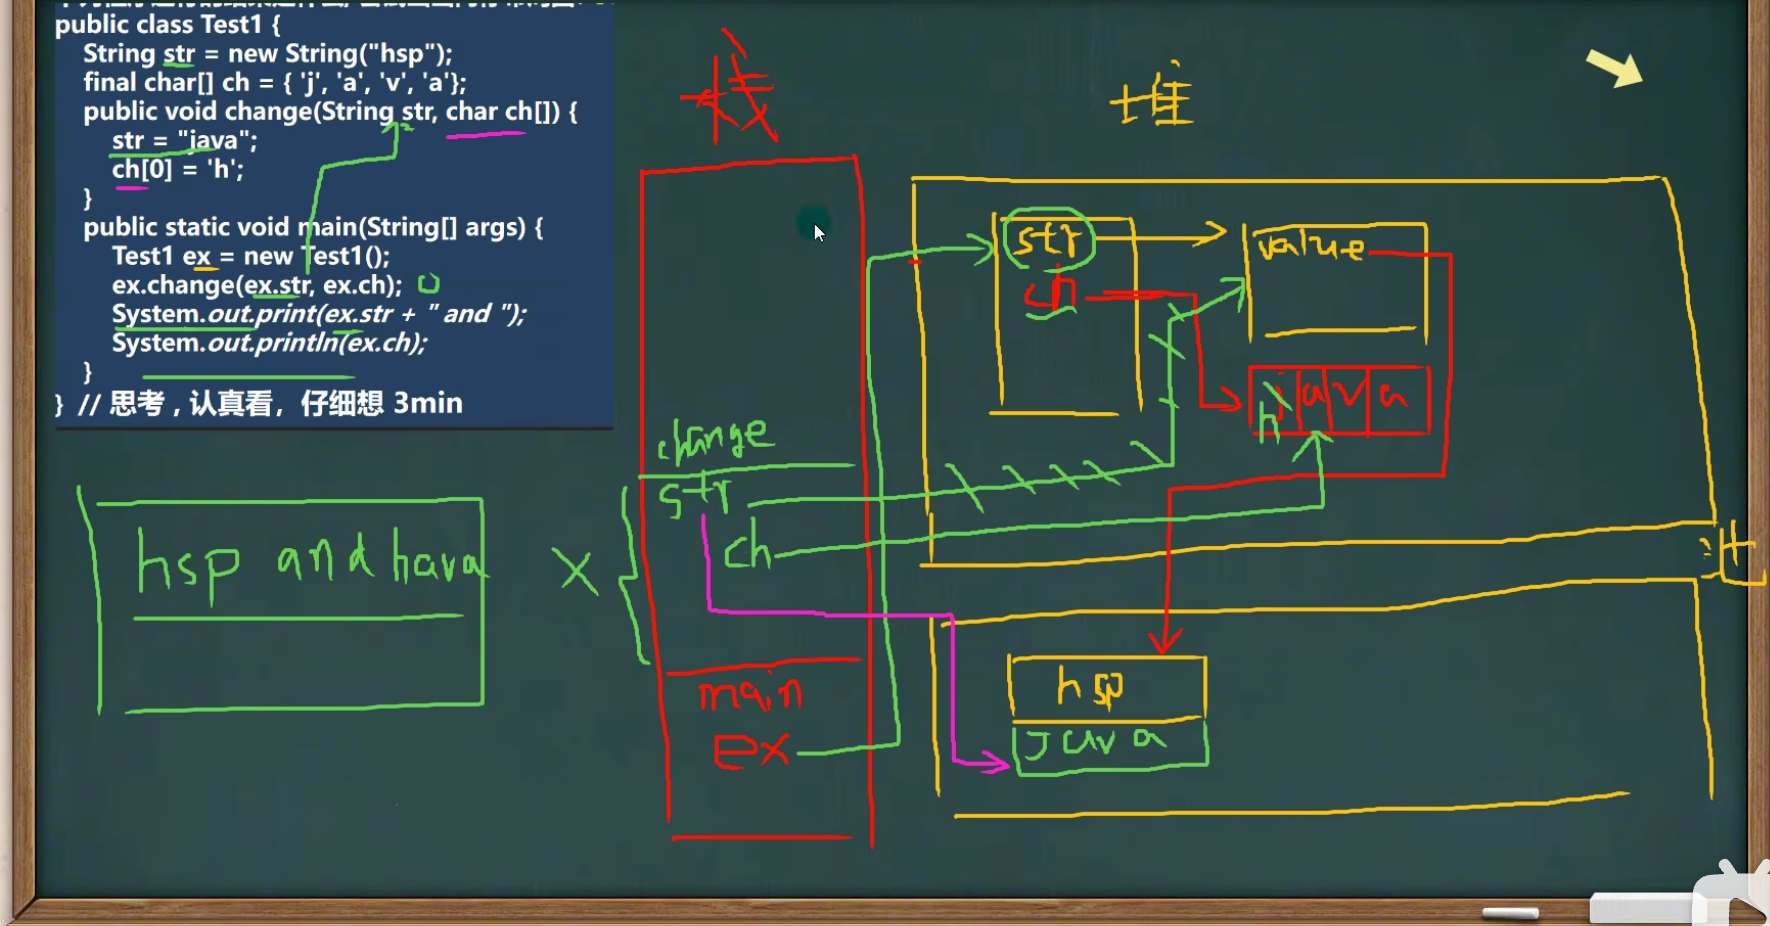 public class Test1 {
String str = new String("hsp");
final char[] ch = { 'j', 'a', 'v', 'a'};
public void change(String str, char ch[]) {
str = "java";
ch[0] = 'h';
}
public static void main(String[] args) {
Test1 ex = new Test1();
ex.change(ex.str, ex.ch);
System.out.print(ex.str + " and ");
System.out.println(ex.ch);
}
} // 思考，认真看，仔细想 3min
hsp and hava
栈
change
str
ch
main
ex
堆
str
ch
value
j a v a
h
hsp
java